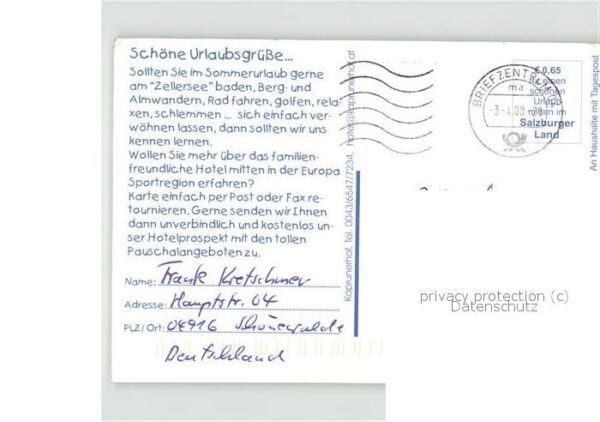 Schöne Urlaubsgrüße...
Sollten Sie im Sommerurlaub gerne
am "Zellersee" baden, Berg- und
Almwandern, Rad fahren, golfen, rela-
xen, schlemmen ... sich einfach ver-
wöhnen lassen, dann sollten wir uns
kennen lernen.
Wollen Sie mehr über das familien-
freundliche Hotel mitten in der Europa
Sportregion erfahren?
Karte einfach per Post oder Fax re-
tournieren. Gerne senden wir Ihnen
dann unverbindlich und kostenlos un-
ser Hotelprospekt mit den tollen
Pauschalangeboten zu.
Name: Frank Kretschmer
Adresse: Hauptstr. 64
PLZ/Ort: 04916 Schönewalde
Deutschland
Kaprunerhof, Tel. 0043/6547/7234, hotel@kaprunerhof.at
BRIEFZENTRUM
ma
€ 0,65
für einen
schönen
Urlaub
mitten im
Salzburger
Land
An Haushalte mit Tagespost
privacy protection (c)
Datenschutz